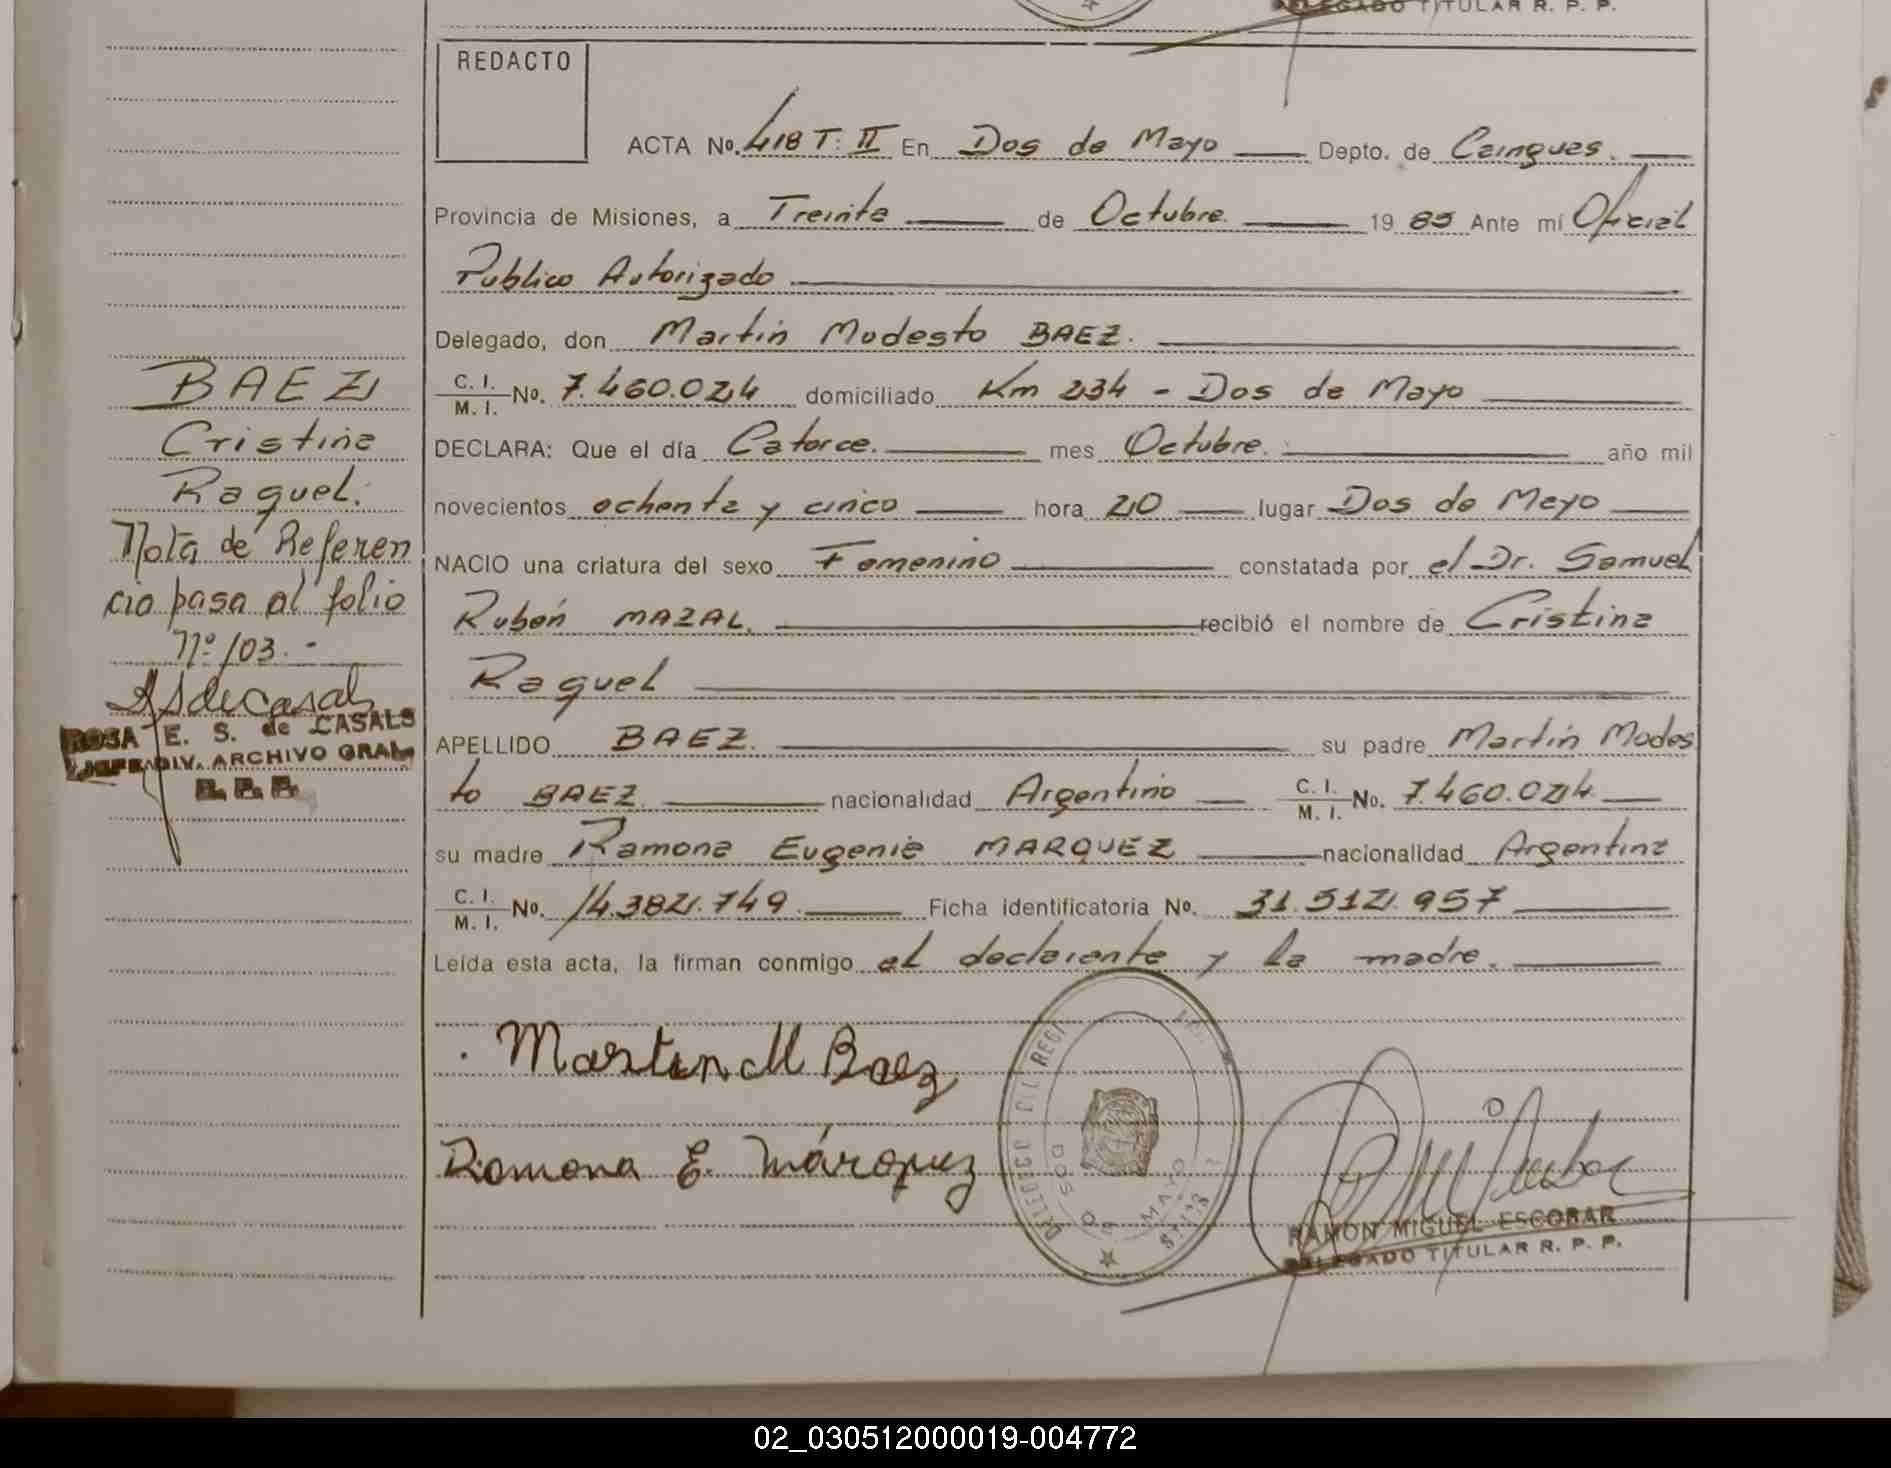 DELEGADO TITULAR R. P. P.
REDACTO
ACTA No. 418 T. II En Dos de Mayo Depto. de Cainguas.
Provincia de Misiones, a Treinta de Octubre. 19 85 Ante mí Oficial
Publico Autorizado
Delegado, don Martin Modesto BAEZ.
C. I. / M. I. No. 7.460.024 domiciliado Km 234 - Dos de Mayo
DECLARA: Que el día Catorce. mes Octubre. año mil
novecientos ochenta y cinco hora 20 lugar Dos de Mayo
NACIO una criatura del sexo Femenino constatada por el Dr. Samuel
Rubén MAZAL. recibió el nombre de Cristina
Raquel
APELLIDO BAEZ. su padre Martin Modes
to BAEZ. nacionalidad Argentino C. I. / M. I. No. 7.460.024
su madre Ramona Eugenia MARQUEZ nacionalidad Argentina
C. I. / M. I. No. 14.382.749. Ficha identificatoria No. 31.512.957
Leída esta acta, la firman conmigo el declarante y la madre.
Martin M Baez
Ramona E. Márquez
DOS DE MAYO
RAMON MIGUEL ESCOBAR
DELEGADO TITULAR R. P. P.
BAEZ
Cristina
Raquel.
Nota de Referen
cia pasa al folio
Nº 103.-
RSdeCasals
ROSA E. S. de CASALS
JEFE DIV. ARCHIVO GRAL.
R. P. P.
02_030512000019-004772